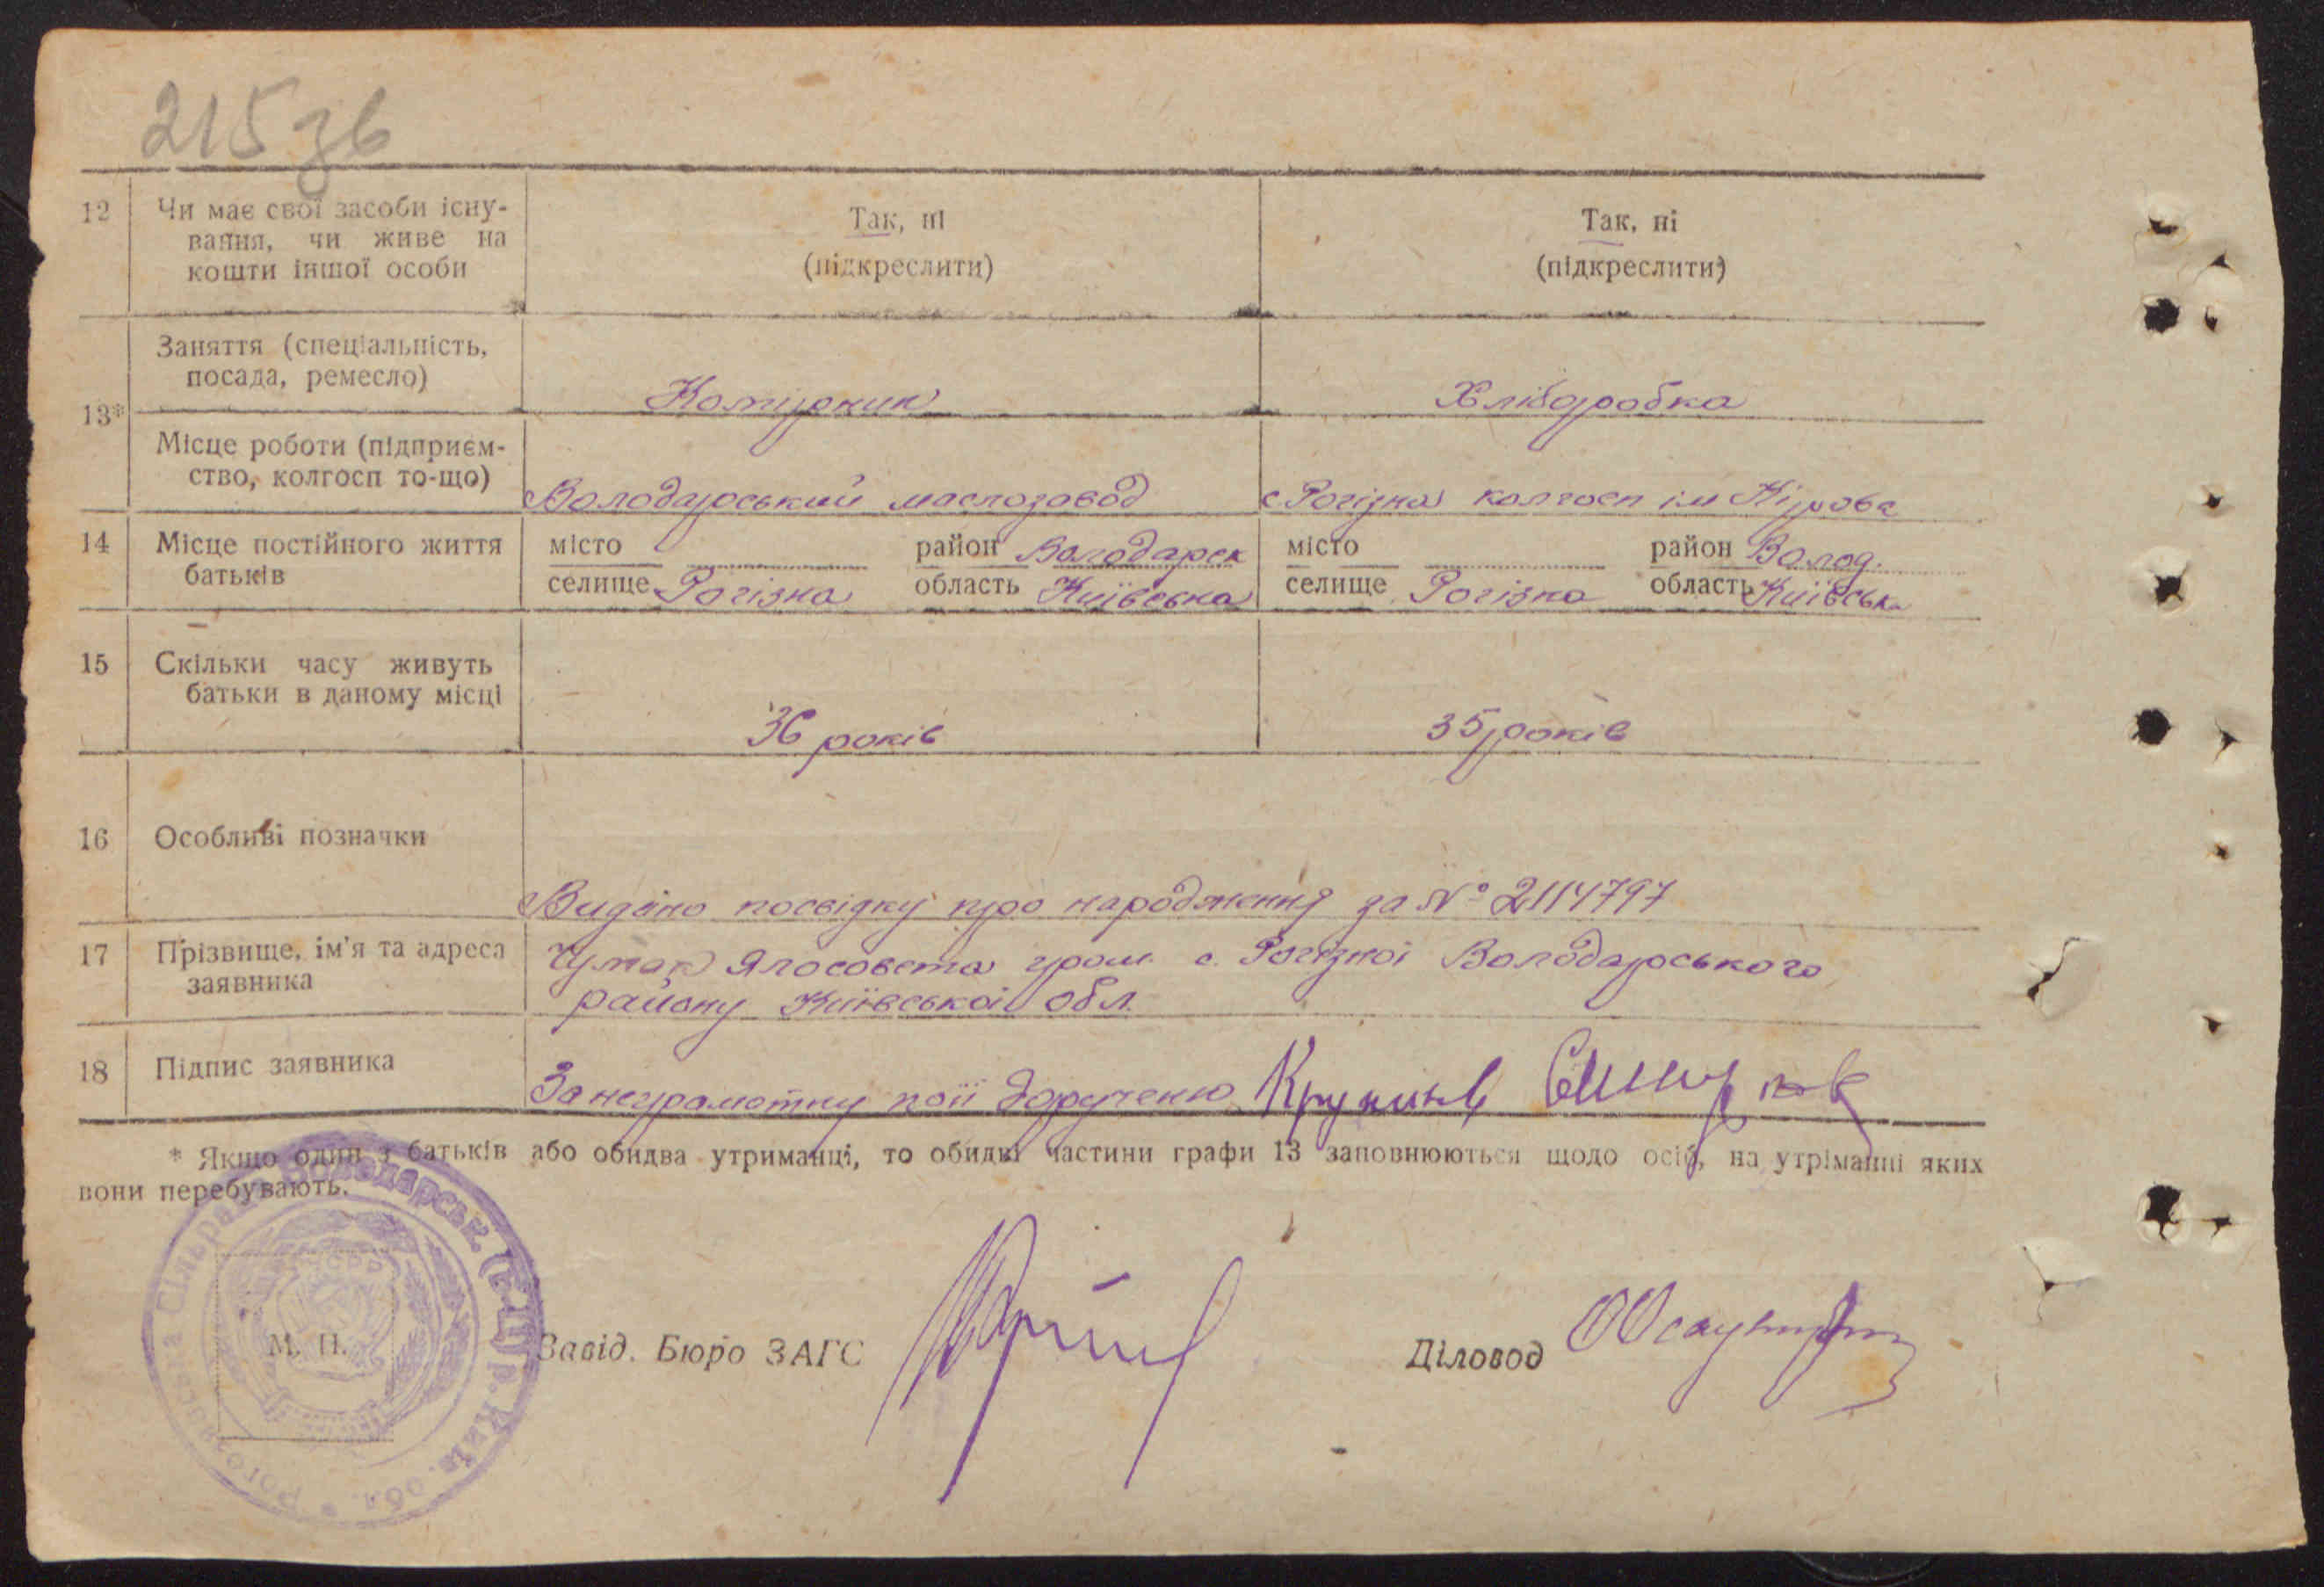 215 зв
12 Чи має свої засоби існу-
вання, чи живе на
кошти іншої особи
Так, ні
(підкреслити)
Так, ні
(підкреслити)
13*
Заняття (спеціальність,
посада, ремесло)
Хліборобка
Місце роботи (підприєм-
ство, колгосп то-що)
Володарський маслозавод
с Рогізна колгосп ім Кірова
14 Місце постійного життя
батьків
місто район Володарськ
селище Рогізна область Київська
місто район Волод.
селище Рогізна область Київська
15 Скільки часу живуть
батьки в даному місці
36 років
35 років
16 Особливі позначки
Видано посвідку про народження за № 2114797
17 Прізвище, ім'я та адреса
заявника
Чумак гром. с. Рогізної Володарського
району Київської обл.
18 Підпис заявника
За неграмотну по її дорученю
* Якщо один з батьків або обидва утриманці, то обидві частини графи 13 заповнюються щодо осіб, на утріманні яких
вони перебувають.
Сільрада Володарськ. р. Київ. обл.
М. П.
Завід. Бюро ЗАГС
Діловод